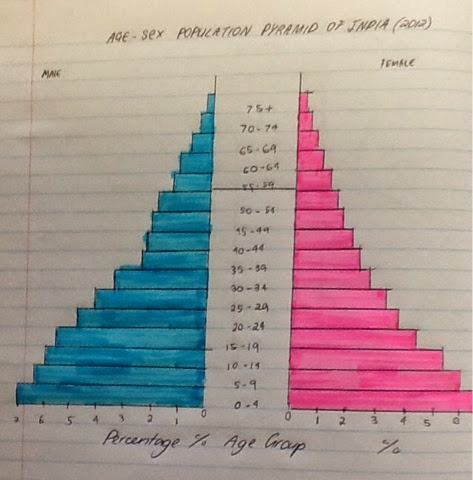 AGE-SEX POPULATION PYRAMID OF INDIA (2012)
MALE
FEMALE
75+
70-74
65-69
60-64
55-59
50-54
45-49
40-44
35-39
30-34
25-29
20-24
15-19
10-14
5-9
0-4
7 6 5 4 3 2 1 0 0 1 2 3 4 5 6
Percentage % Age Group %